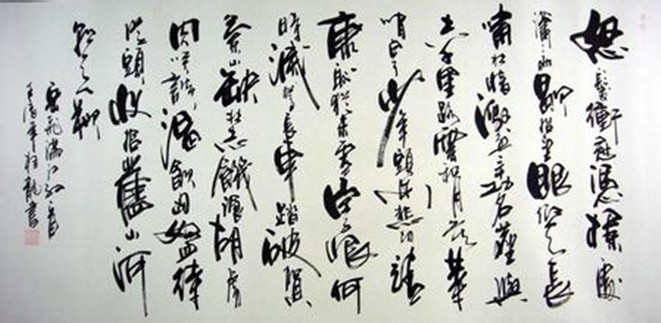 怒髮衝冠憑欄處
瀟〻雨歇抬望眼仰天長
嘯壯懷激烈三十功名塵與
土八千里路雲和月莫等
閒白了少年頭空悲切靖
康恥猶未雪臣子恨何
時滅駕長車踏破賀
蘭山缺壯志飢餐胡虜
肉笑談渴飲匈奴血待
從頭收拾舊山河
朝天闕
岳飛滿江紅